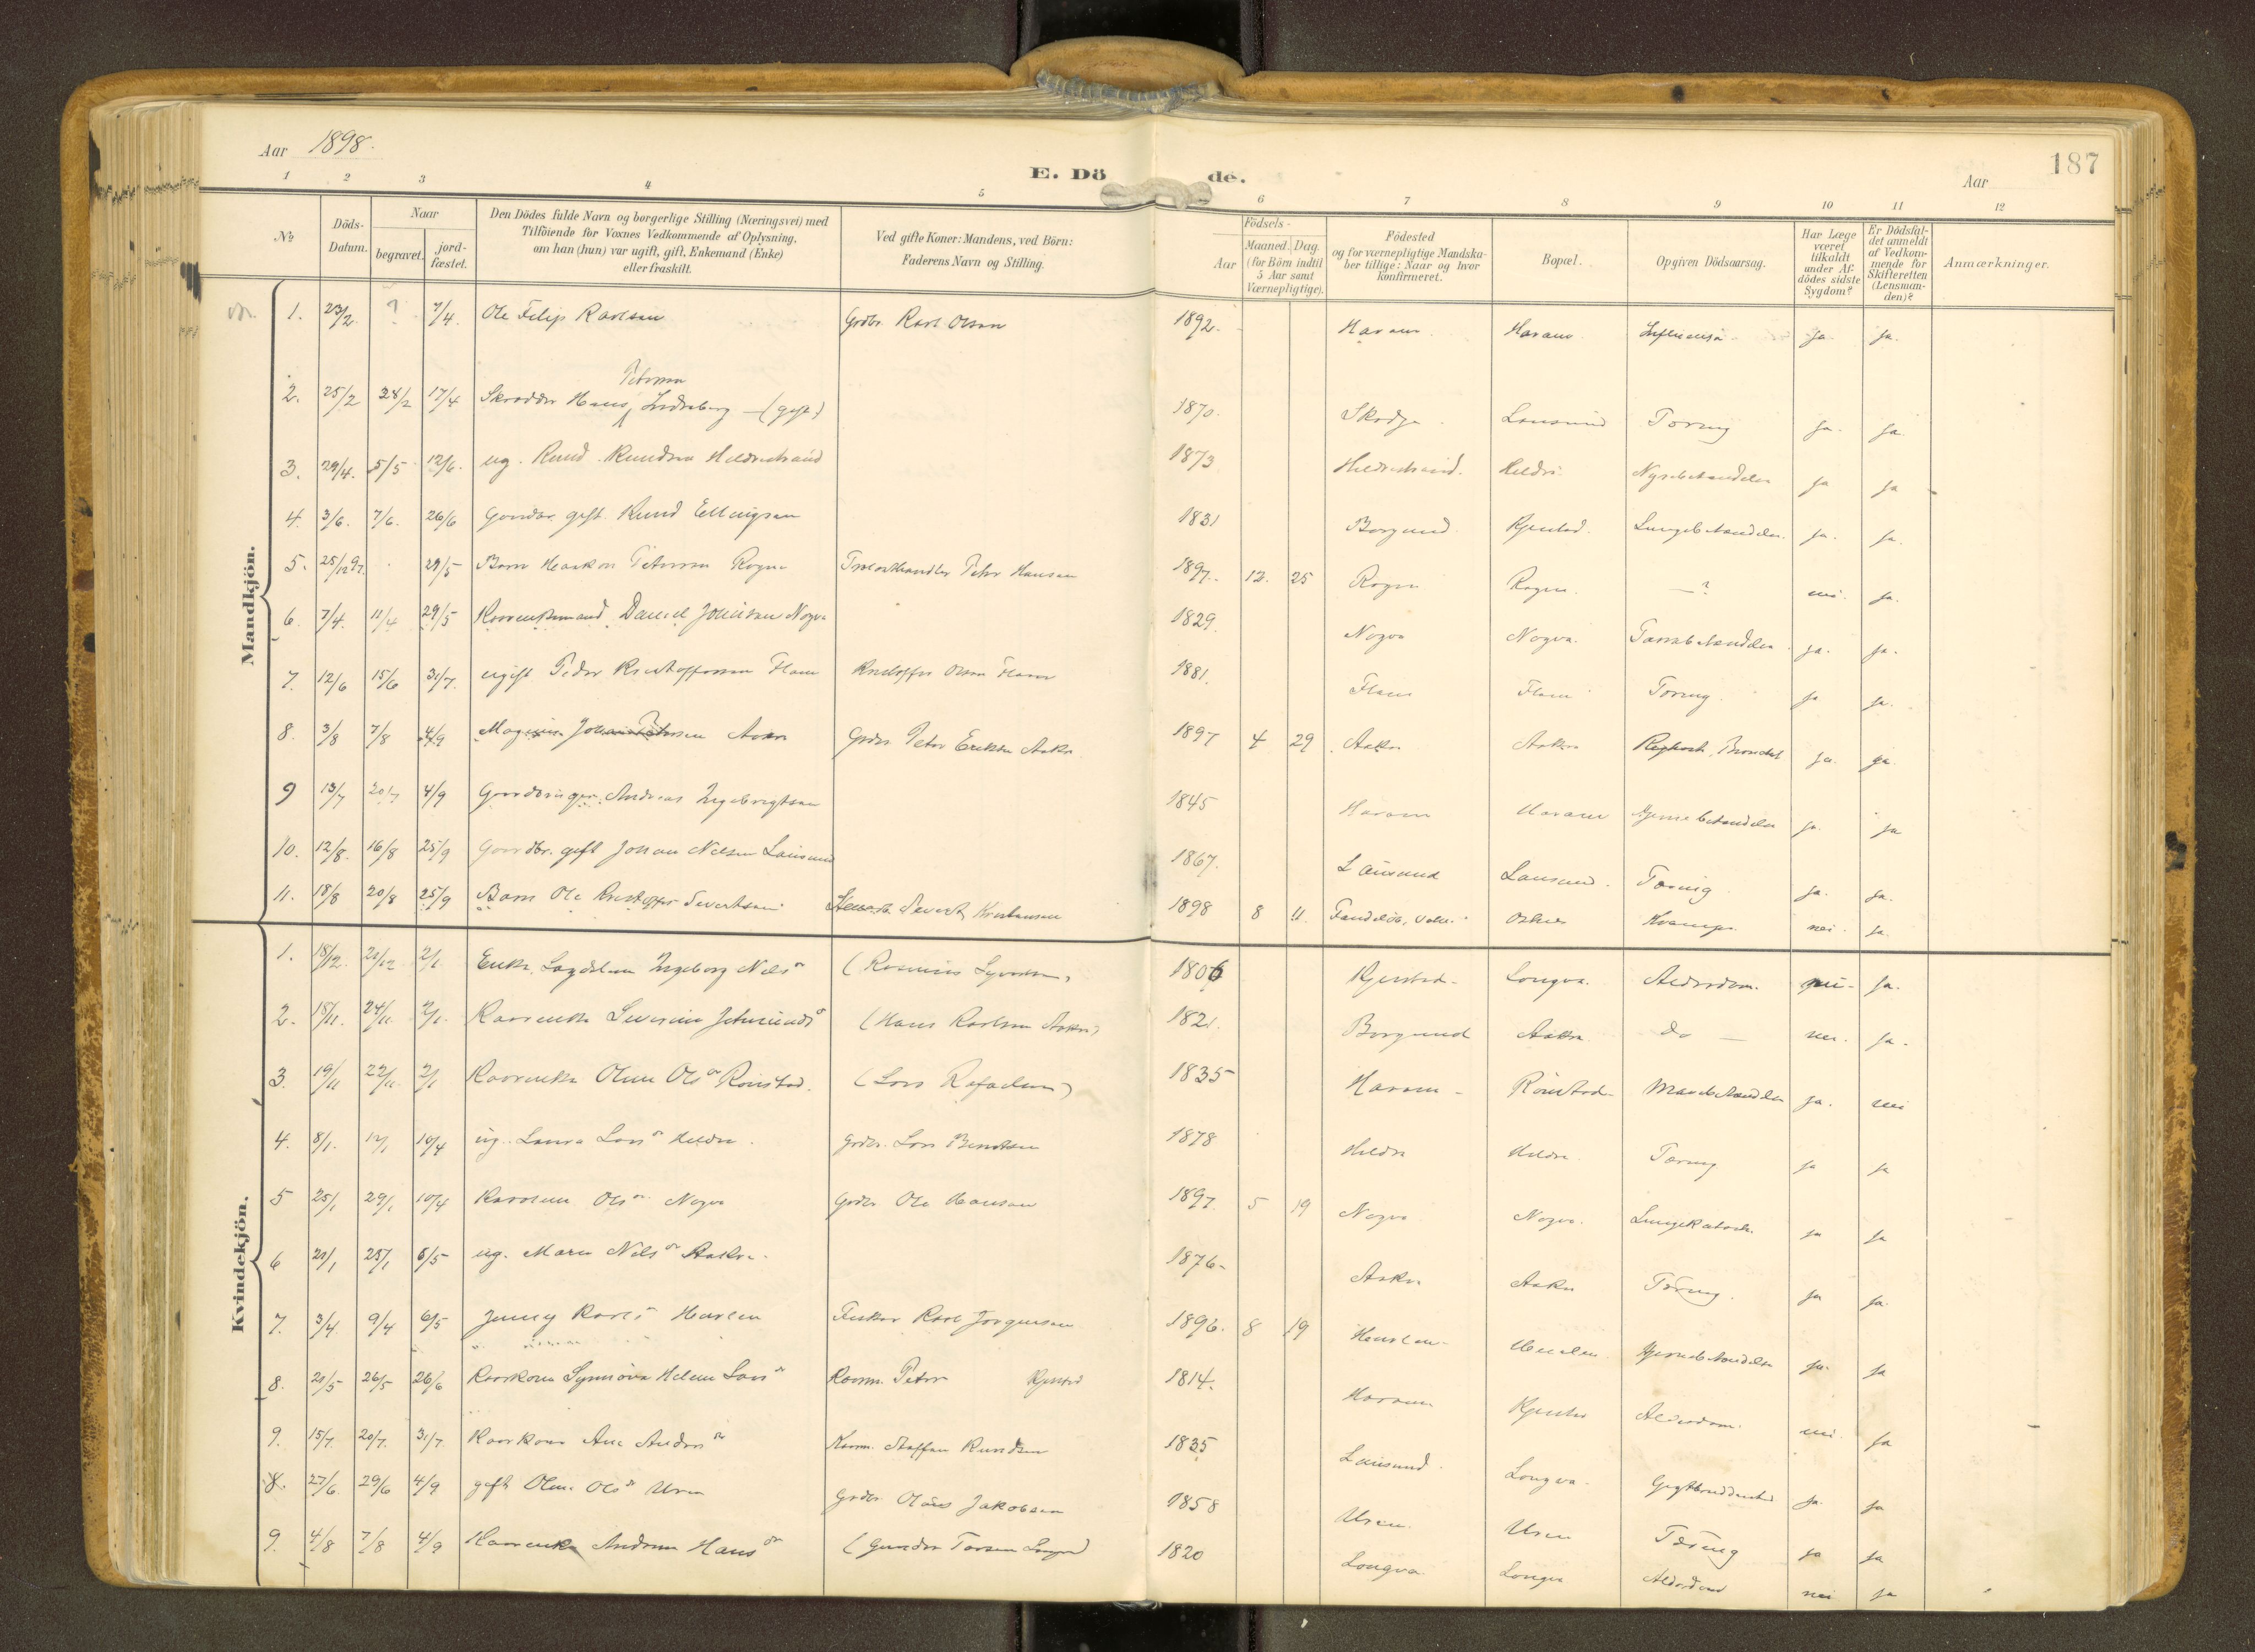 Aar 1898.
E. Döde.
Aar
187
1 2 3 4 5 6 7 8 9 10 11 12
№
Döds-Datum.
Naar
begravet.
jord-fæstet.
Den Dödes fulde Navn og borgerlige Stilling (Næringsvei) med
Tilföiende for Voxnes Vedkommende af Oplysning,
om han (hun) var ugift, gift, Enkemand (Enke)
eller fraskilt.
Ved gifte Koner: Mandens, ved Börn:
Faderens Navn og Stilling.
Födsels-
Aar
Maaned. Dag.
(for Börn indtil
5 Aar samt
Værnepligtige).
Födested
og for værnepligtige Mandska-
ber tillige: Naar og hvor
konfirmeret.
Bopæl.
Opgiven Dödsaarsag.
Har Læge
været
tilkaldt
under Af-
dödes sidste
Sygdom?
Er Dödsfal-
det anmeldt
af Vedkom-
mende for
Skifteretten
(Lensman-
den)?
Anmærkninger.
Mandkjön.
1. 23/2. ? 7/4. Ole Filip Karlsen Grdbr. Karl Olsen 1892. Haram. Haram Influensa ja. ja.
Petersen
2. 25/2 28/2 17/4 Skrædder Hans Indreberg - (gift) 1870. Skodje. Longund Tæring ja. ja.
3. 29/4. 5/5 12/6. ug. Knud Knudsen Hildrestrand 1873 Hildrestrand. Hildre. Nyrebetændelse ja ja
4. 3/6. 7/6. 26/6 Gaardbr. gift. Knud Ellingsen 1831 Borgund Kjerstad. Lungebetændelse. ja. ja.
5. 25/12 97. 29/5 Barn Haakon Petersen Rogne Peter Hansen 1897. 12. 25 Rogne Rogne. — ? nei. ja.
6. 7/4. 11/4 29/5 Kaarenkemand Daniel Johnsen Nogva 1829. Nogva Nogva. Tarmbetændelse ja. ja.
7. 12/6 15/6 31/7. ugift Peder Kristoffersen Flem Kristoffer Olsen Flem 1881. Flem Flem Tæring. ja ja.
8. 3/8 7/8 4/9 Magnus Johan Petersen Aakre Grdbr. Peter Eriksen Aakre 1897 4 29 Aakre Aakre Bronchit ja. ja.
9 13/7 20/7 4/9 Gaardbruger Andreas Ingebrigtsen 1845 Haram Haram Hjernebetændelse ja. ja
10. 12/8. 16/8 25/9 Gaardbr. gift Johan Nilsen Lausund 1867. Lausund Lausund. Tæring ja. ja.
11. 18/8 20/8 25/9 Barn Ole Kristoffer Severtsen Severt Kristiansen 1898 8 11. nei. ja.
Kvindekjön.
1. 18/12. 21/12 2/1. Enke Ingeborg Nils dr (Rasmus 1806 Kjerstad- Longva. Alderdom. nei- ja.
2. 18/11. 24/11. 2/1. Kaarenke Severine (Hans Karlsen Aakre) 1821. Borgund Aakre do — nei. ja.
3. 19/11 22/11. 2/1 Kaarenke Oline Ols dr Rönstad. (Lars Rafaelsen) 1835 Haram - Rönstad- Mavebetændelse ja. nei
4. 8/1. 12/1 10/4 ug. Laura Lars dr Hildre. Grdbr. Lars Berntsen 1878 Hildre Hildre Tæring ja ja
5 25/1 29/1 10/4 Karoline Ols dr Nogva Grdbr. Ole Hansen 1897. 5 19 Nogva Nogva. Lungekatarrh. ja ja
6 21/1 25/1 6/5 ug. Maren Nils dr Aakre. 1876- Aakre Aakre Tæring. ja ja.
7. 3/4. 9/4 6/5 Jenny Karls dr Fisker Karl Jörgensen 1896. 8 19 Hjernebetændelse ja. ja
8. 21/5 26/5 26/6 Kaarkone Synnöva Helene Lars dr Kaarm. Peter Kjerstad 1814. Haram Kjerstad Alderdom. nei. ja
9. 15/7. 20/7. 31/7. Kaarkone Ane Anders dr Kaarm. Staffen Knudsen 1835 Lausund. Longva. ja. ja
8. 27/6. 29/6 4/9 gift Oline Ols dr Ursen Grdbr. Olaus Jakobsen 1858 Ursen. Ursen Tæring ja ja
9. 4/8 7/8 4/9 Kaarenke Andrine Hans dr (Gunder 1820 Longva. Longva Alderdom nei ja